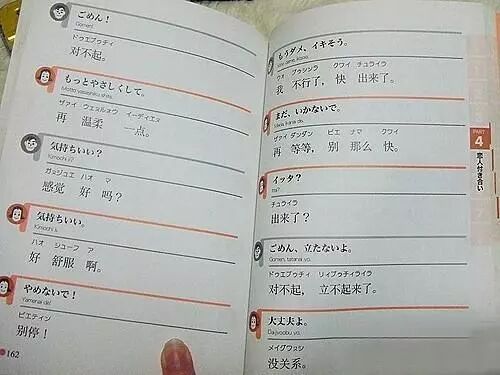 ごめん！
Gomen!
ドゥエブゥチィ
对不起。
もっとやさしくして。
Motto yasashiku shite.
ヅァイ ウェンルォウ イーディエン
再 温柔 一点。
気持ちいい？
Kimochi ii?
ガンジュエ ハオ マ
感觉 好 吗？
気持ちいい。
Kimochi ii.
ハオ シューフ ア
好 舒服 啊。
やめないで！
Yamenai de!
ビエティン
别停！
162
もうダメ、イキそう。
Moo dame, ikisoo.
ウオ ブゥシンラ クワイ チュライラ
我 不行了，快 出来了。
まだ、いかないで。
Mada, ikanai de.
ヅァイ ダンダン ビエ ナマ クワイ
再 等等，别 那么 快。
イッタ？
Itta?
チュライラ
出来了？
ごめん、立たないよ。
Gomen, tatanai yo.
ドゥエブゥチィ リィブゥチィライラ
对不起，立不起来了。
大丈夫よ。
Daijoobu yo.
メイグワンシ
没关系。
PART
4
恋人付き合い